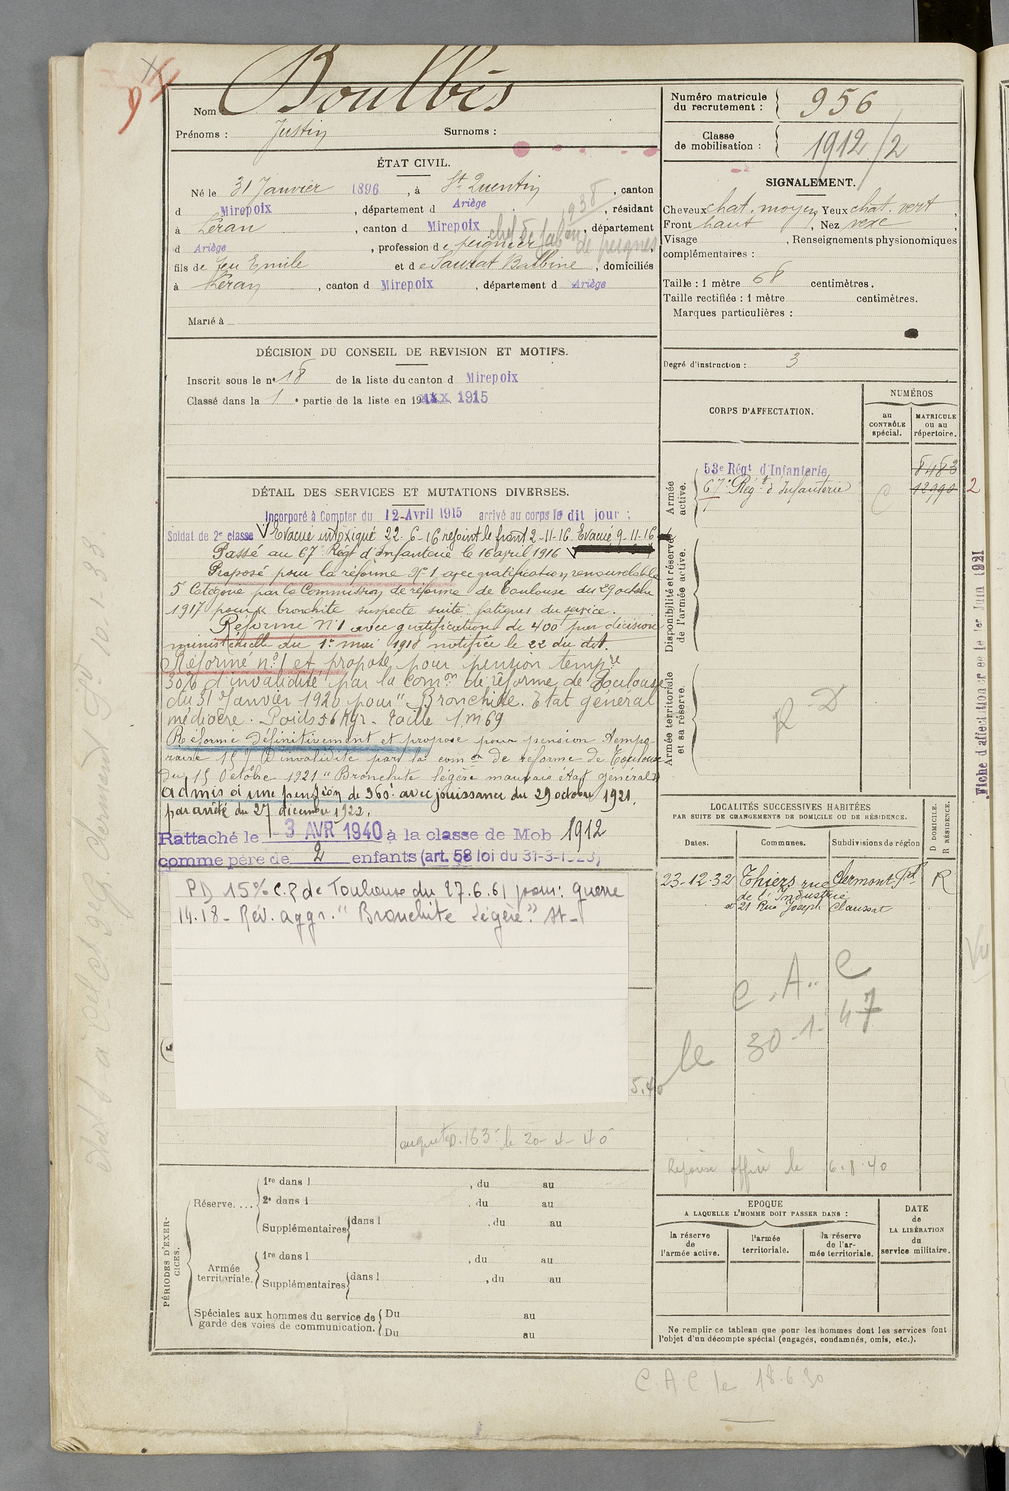 Nom Boulbès
Prénoms : Justin Surnoms :
ÉTAT CIVIL.
Né le 31 Janvier 1896, à St Quentin, canton
d Mirepoix, département d Ariège, résidant
à Léran, canton d Mirepoix, département
d Ariège, profession de peignier
fils de feu Emile et de Saurat Balbine, domiciliés
à Léran, canton d Mirepoix, département d Ariège
Marié à
DÉCISION DU CONSEIL DE REVISION ET MOTIFS.
Inscrit sous le n° 18 de la liste du canton d Mirepoix
Classé dans la 1 e partie de la liste en 1915
DÉTAIL DES SERVICES ET MUTATIONS DIVERSES.
Incorporé à Compter du 12 Avril 1915 arrivé au corps le dit jour :
Soldat de 2e classe V Evacué intoxiqué 22-6-16 rejoint le front 2-11-16. Evacué 9-11-16
Passé au 67e Régt d'Infanterie le 16 avril 1916 V
Proposé pour la réforme N°1 avec gratification renouvelable
5e Catégorie par la Commission de réforme de Toulouse du 29 octobre
1917 pour bronchite suspecte suite fatigues du service.
Réformé N°1 avec gratification de 400f par décision
ministérielle du 1er mai 1918 notifiée le 22 du dit.
Réformé n°1 et proposé pour pension tempre
30% d'invalidité par la comon de réforme de Toulouse
du 31 Janvier 1920 pour "Bronchite. Etat général
médiocre. Poids 56 Kgr. Taille 1m69
Réformé définitivement et proposé pour pension tempo-
raire 15% d'invalidité par la comon de réforme de Toulouse
du 15 Octobre 1921 "Bronchite légère mauvais état général"
admis à une pension de 360f avec jouissance du 29 octobre 1921,
par arrêté du 27 décembre 1922.
Rattaché le 3 AVR 1940 à la classe de Mob 1912
comme père de 2 enfants (art. 58 loi du 31-3-1928)
PD 15% C.R de Toulouse du 27.6.61 pour: guerre
14.18 - Rév. aggr. "Bronchite légère." St -
5.40
D.163 le 20-4-40
PÉRIODES D'EXERCICES.
Réserve.... 1re dans l , du au
2e dans l , du au
Supplémentaires dans l , du au
Armée territoriale. 1re dans l , du au
Supplémentaires dans l , du au
Spéciales aux hommes du service de garde des voies de communication. Du au
Du au
Numéro matricule du recrutement : 956
Classe de mobilisation : 1912/2
SIGNALEMENT.
Cheveux chat. moyen, Yeux chat. vert,
Front haut, Nez vexe,
Visage , Renseignements physionomiques
complémentaires :
Taille : 1 mètre 68 centimètres.
Taille rectifiée : 1 mètre centimètres.
Marques particulières :
Degré d'instruction : 3
CORPS D'AFFECTATION.
NUMÉROS
au CONTRÔLE spécial.
MATRICULE ou au répertoire.
Armée active.
53e Régt d'Infanterie 8483
67e Régt d'Infanterie
Disponibilité et réserve de l'armée active.
Armée territoriale et sa réserve.
R D
LOCALITÉS SUCCESSIVES HABITÉES
PAR SUITE DE CHANGEMENTS DE DOMICILE OU DE RÉSIDENCE.
Dates. Communes. Subdivisions de région D DOMICILE. R RÉSIDENCE.
23-12-32 Thiers rue Clermont-Fd R
de l'Industrie
et 21 Rue Joseph Claussat
C.A.C
le 30-1-47
Réponse le 6.8.40
EPOQUE
A LAQUELLE L'HOMME DOIT PASSER DANS :
la réserve de l'armée active.
l'armée territoriale.
la réserve de l'armée territoriale.
DATE de LA LIBÉRATION du service militaire.
Ne remplir ce tableau que pour les hommes dont les services font
l'objet d'un décompte spécial (engagés, condamnés, omis, etc.).
C.A.C le 18.6.30
Fiche d'affectation créée le 1er Juin 1921